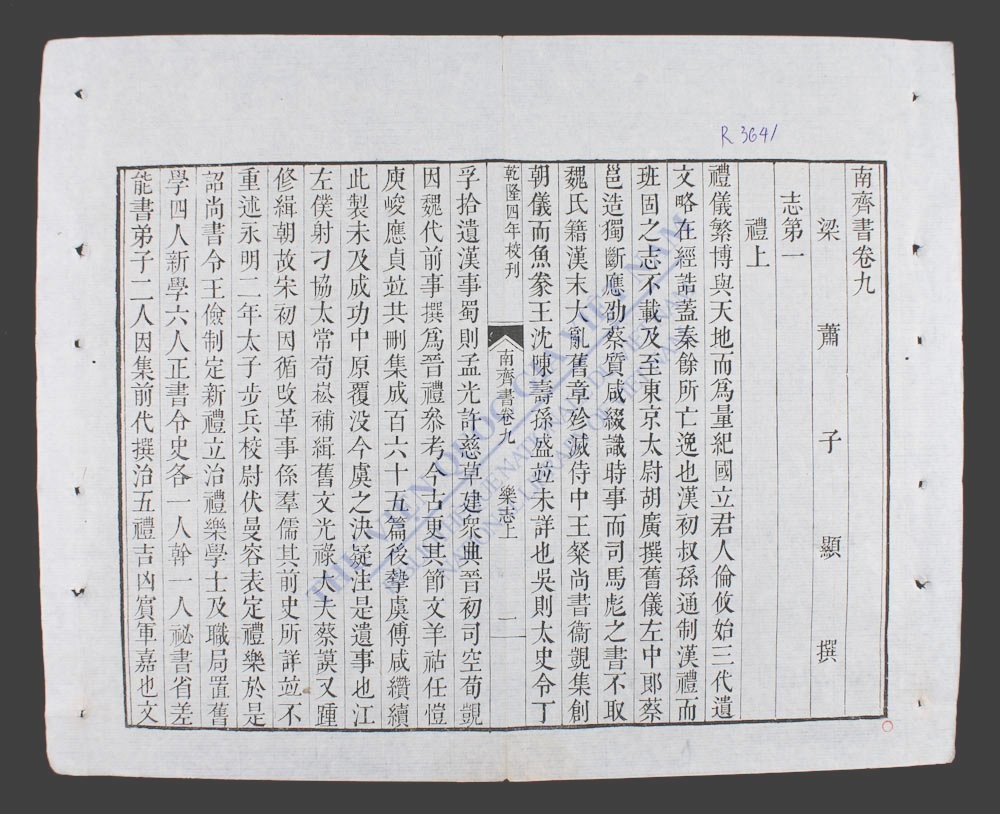 R 3641
南齊書卷九
梁蕭子顯撰
志第一
禮上
禮儀繁博與天地而爲量紀國立君人倫攸始三代遺
文略在經誥蓋秦餘所亡逸也漢初叔孫通制漢禮而
班固之志不載及至東京太尉胡廣撰舊儀左中郎蔡
邕造獨斷應劭蔡質咸綴識時事而司馬彪之書不取
魏氏籍漢末大亂舊章殄滅侍中王粲尚書衞覬集創
朝儀而魚豢王沈陳壽孫盛竝未詳也吳則太史令丁
乾隆四年校刊
南齊書卷九 樂志上 一
孚拾遺漢事蜀則孟光許慈草建衆典晉初司空荀覬
因魏代前事撰爲晉禮參考今古更其節文羊祜任愷
庾峻應貞竝共刪集成百六十五篇後摯虞傅咸纘續
此製未及成功中原覆没今虞之決疑注是遺事也江
左僕射刁協太常荀崧補緝舊文光祿大夫蔡謨又踵
修緝朝故宋初因循改革事係羣儒其前史所詳竝不
重述永明二年太子步兵校尉伏曼容表定禮樂於是
詔尚書令王儉制定新禮立治禮樂學士及職局置舊
學四人新學六人正書令史各一人幹一人祕書省差
能書弟子二人因集前代撰治五禮吉凶賓軍嘉也文
THU VIEN QUOC GIA VIET NAM
BIBLIOTHEQUE NATIONALE DU VIETNAM
NATIONAL LIBRARY OF VIETNAM